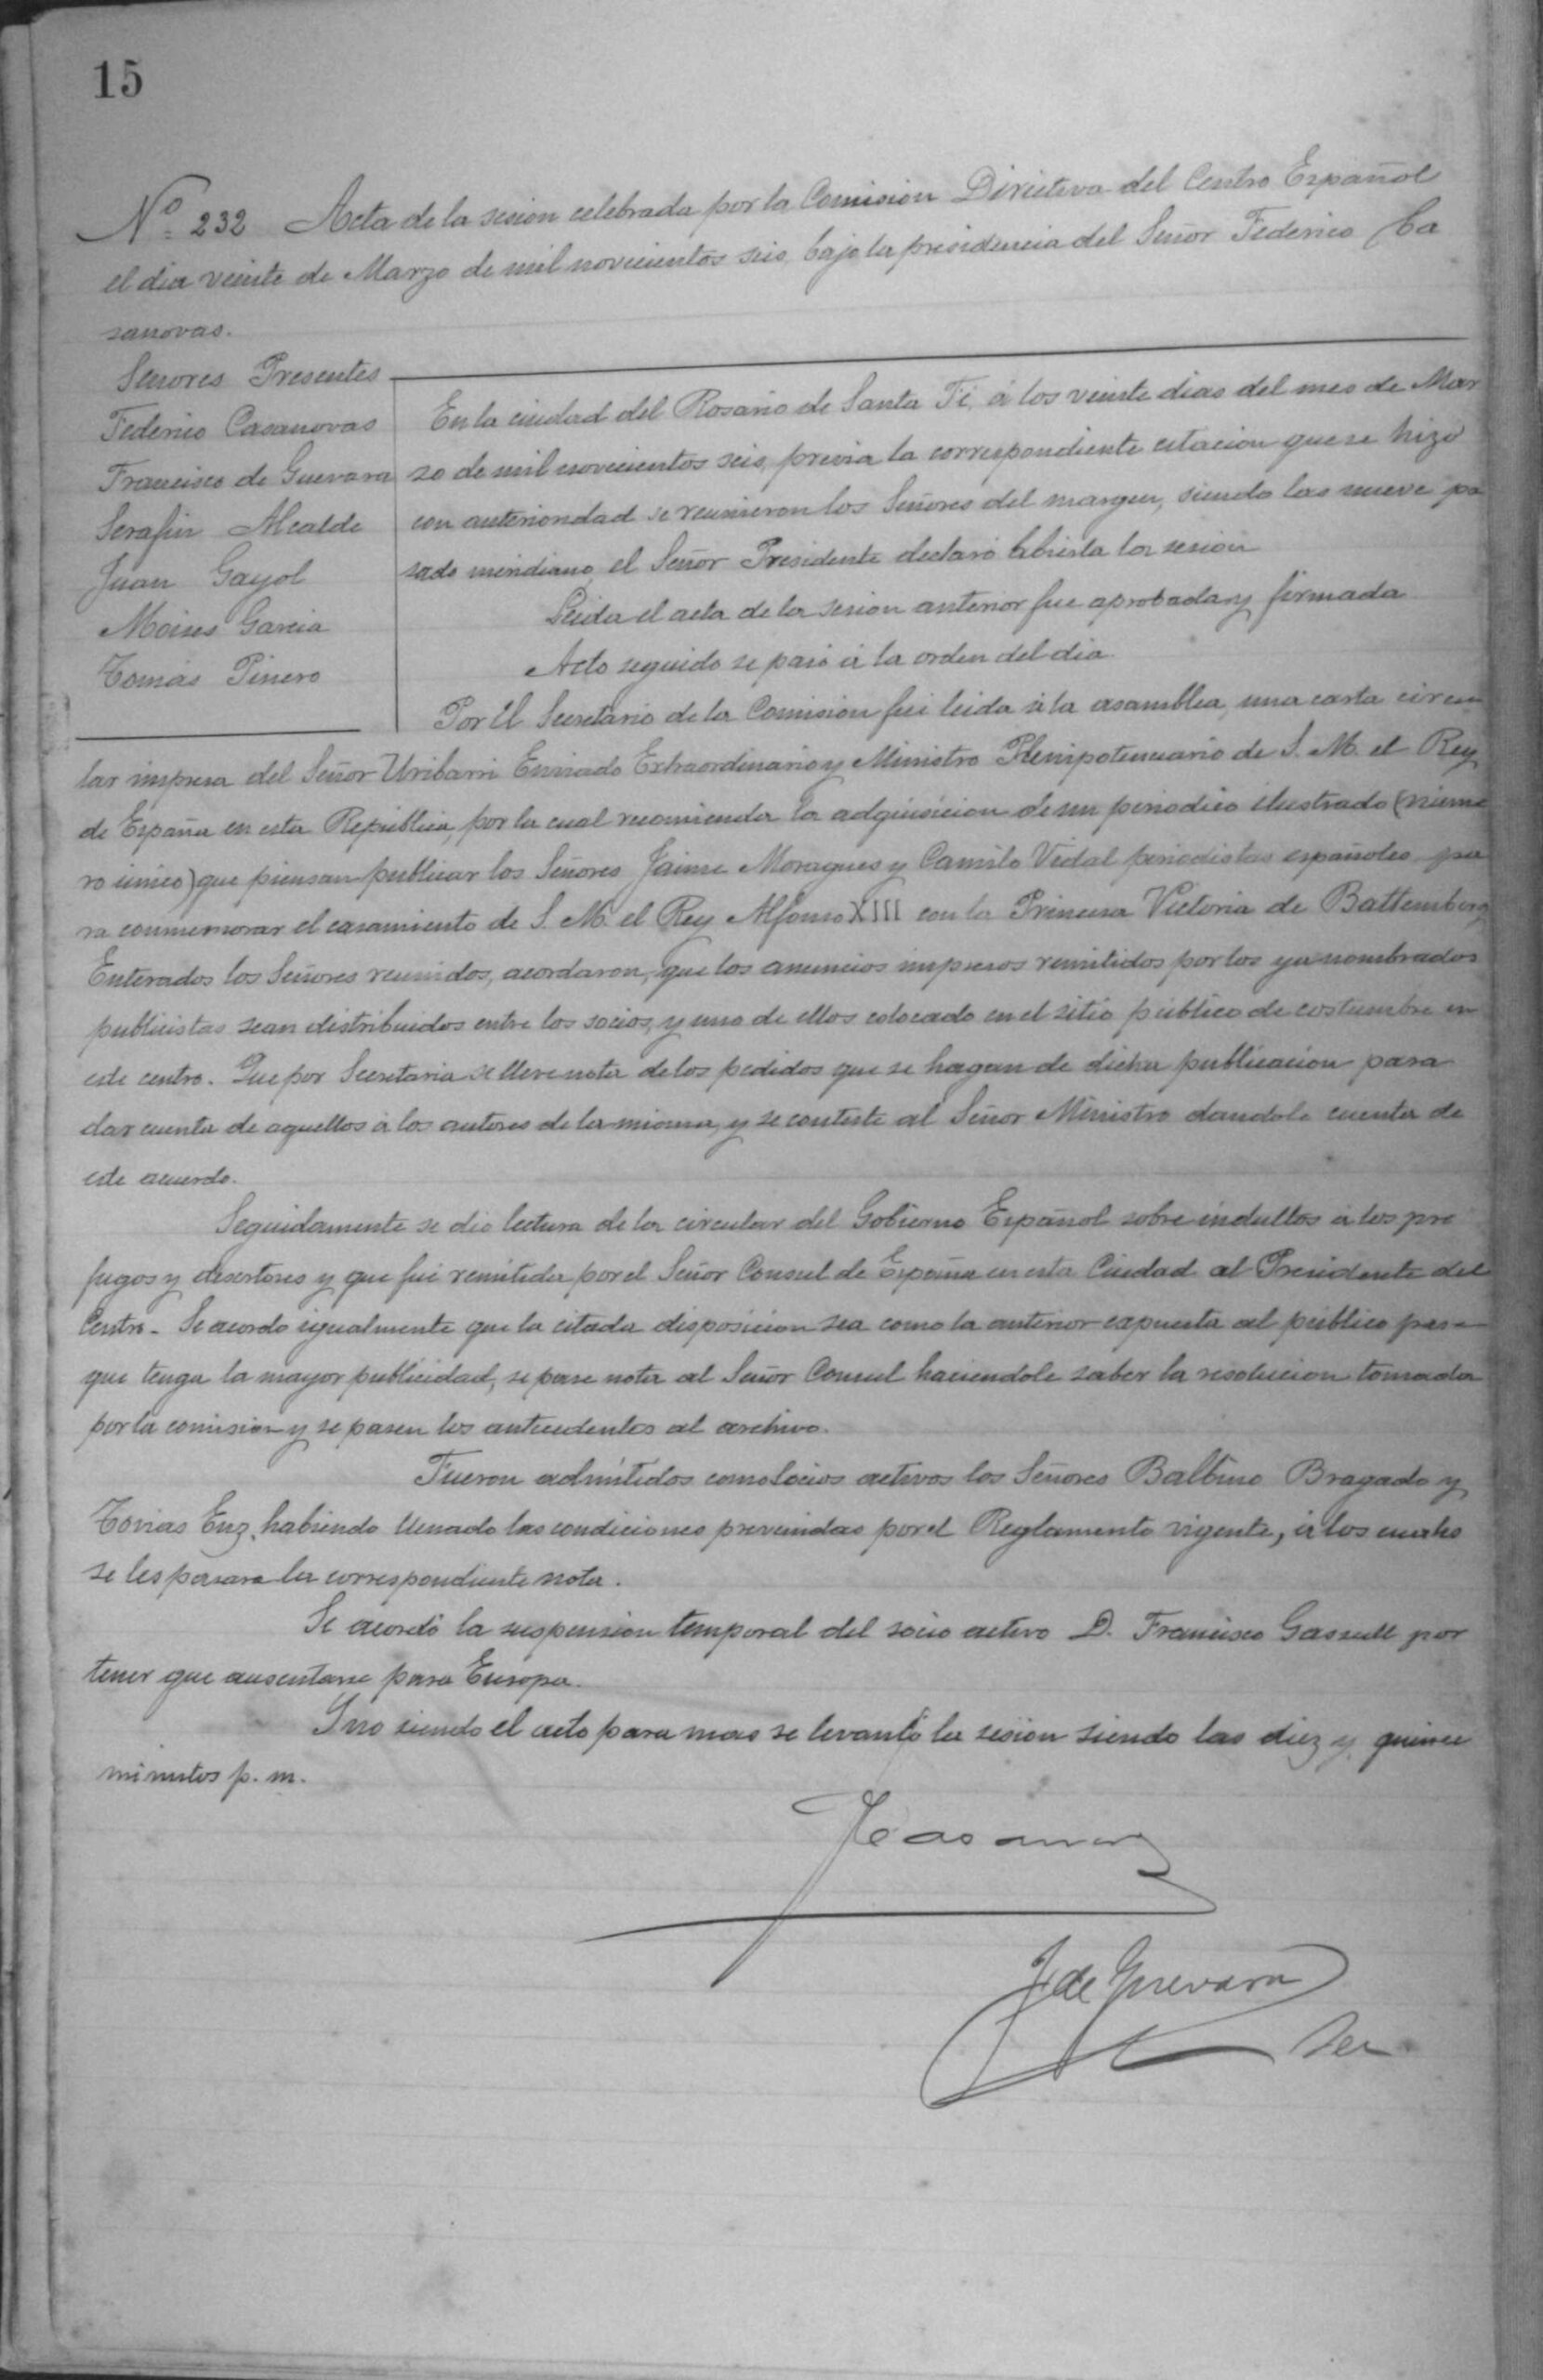 15
Nº 232 Acta de la sesion celebrada por la Comision Directiva del Centro Español
el dia veinte de Marzo de mil novecientos seis, bajo la presidencia del Señor Federico Ca
sanovas.
Señores Presentes
Federico Casanovas
Francisco de Guevara
Serafin Alcalde
Juan Gayol
Moises Garcia
Tomás Pinero
En la ciudad del Rosario de Santa Fé, á los veinte dias del mes de Mar
zo de mil novecientos seis, previa la correspondiente citacion que se hizo
con anterioridad se reunieron los Señores del margen, siendo las nueve pa
sado meridiano, el Señor Presidente declaró abierta la sesion
Leida el acta de la sesion anterior fue aprobada y firmada
Acto seguido se pasó á la orden del dia.
Por El Secretario de la Comision fué leida á la asamblea, una carta circu
lar impresa del Señor Uribarri Enviado Extraordinario y Ministro Plenipotenciario de S. M. el Rey
de España en esta Republica, por la cual recomienda la adquisicion de un periodico ilustrado (nume
ro único) que piensan publicar los Señores Jaime Moragues y Camilo Vidal periodistas españoles pa
ra conmemorar el casamiento de S. M. el Rey Alfonso XIII con la Princesa Victoria de Battemberg
Enterados los Señores reunidos, acordaron, que los anuncios impresos remitidos por los ya nombrados
publicistas sean distribuidos entre los socios, y uno de ellos colocado en el sitio público de costumbre en
este centro. Que por Secretaria se lleve nota de los pedidos que se hagan de dicha publicacion para
dar cuenta de aquellos á los autores de la misma, y se conteste al Señor Ministro dandole cuenta de
este acuerdo.
Seguidamente se dio lectura de la circular del Gobierno Español sobre indultos á los pro
fugos y desertores y que fué remitida por el Señor Consul de España en esta Ciudad al Presidente del
Centro. Se acordo igualmente que la citada disposicion sea como la anterior expuesta al público para
que tenga la mayor publicidad, se pase nota al Señor Consul haciendole saber la resolucion tomada
por la comision y se pasen los antecedentes al archivo.
Fueron admitidos como socios activos los Señores Balbino Bragado y
Tovias Enz, habiendo llenado las condiciones prevenidas por el Reglamento vigente, á los cuales
se les pasara la correspondiente nota.
Se acordó la suspension temporal del socio activo D. Francisco Gassull por
tener que ausentarse para Europa.
Y no siendo el acto para mas se levantó la sesion siendo las diez y quince
minutos p. m.
F Casanovas
F de Guevara
Sec